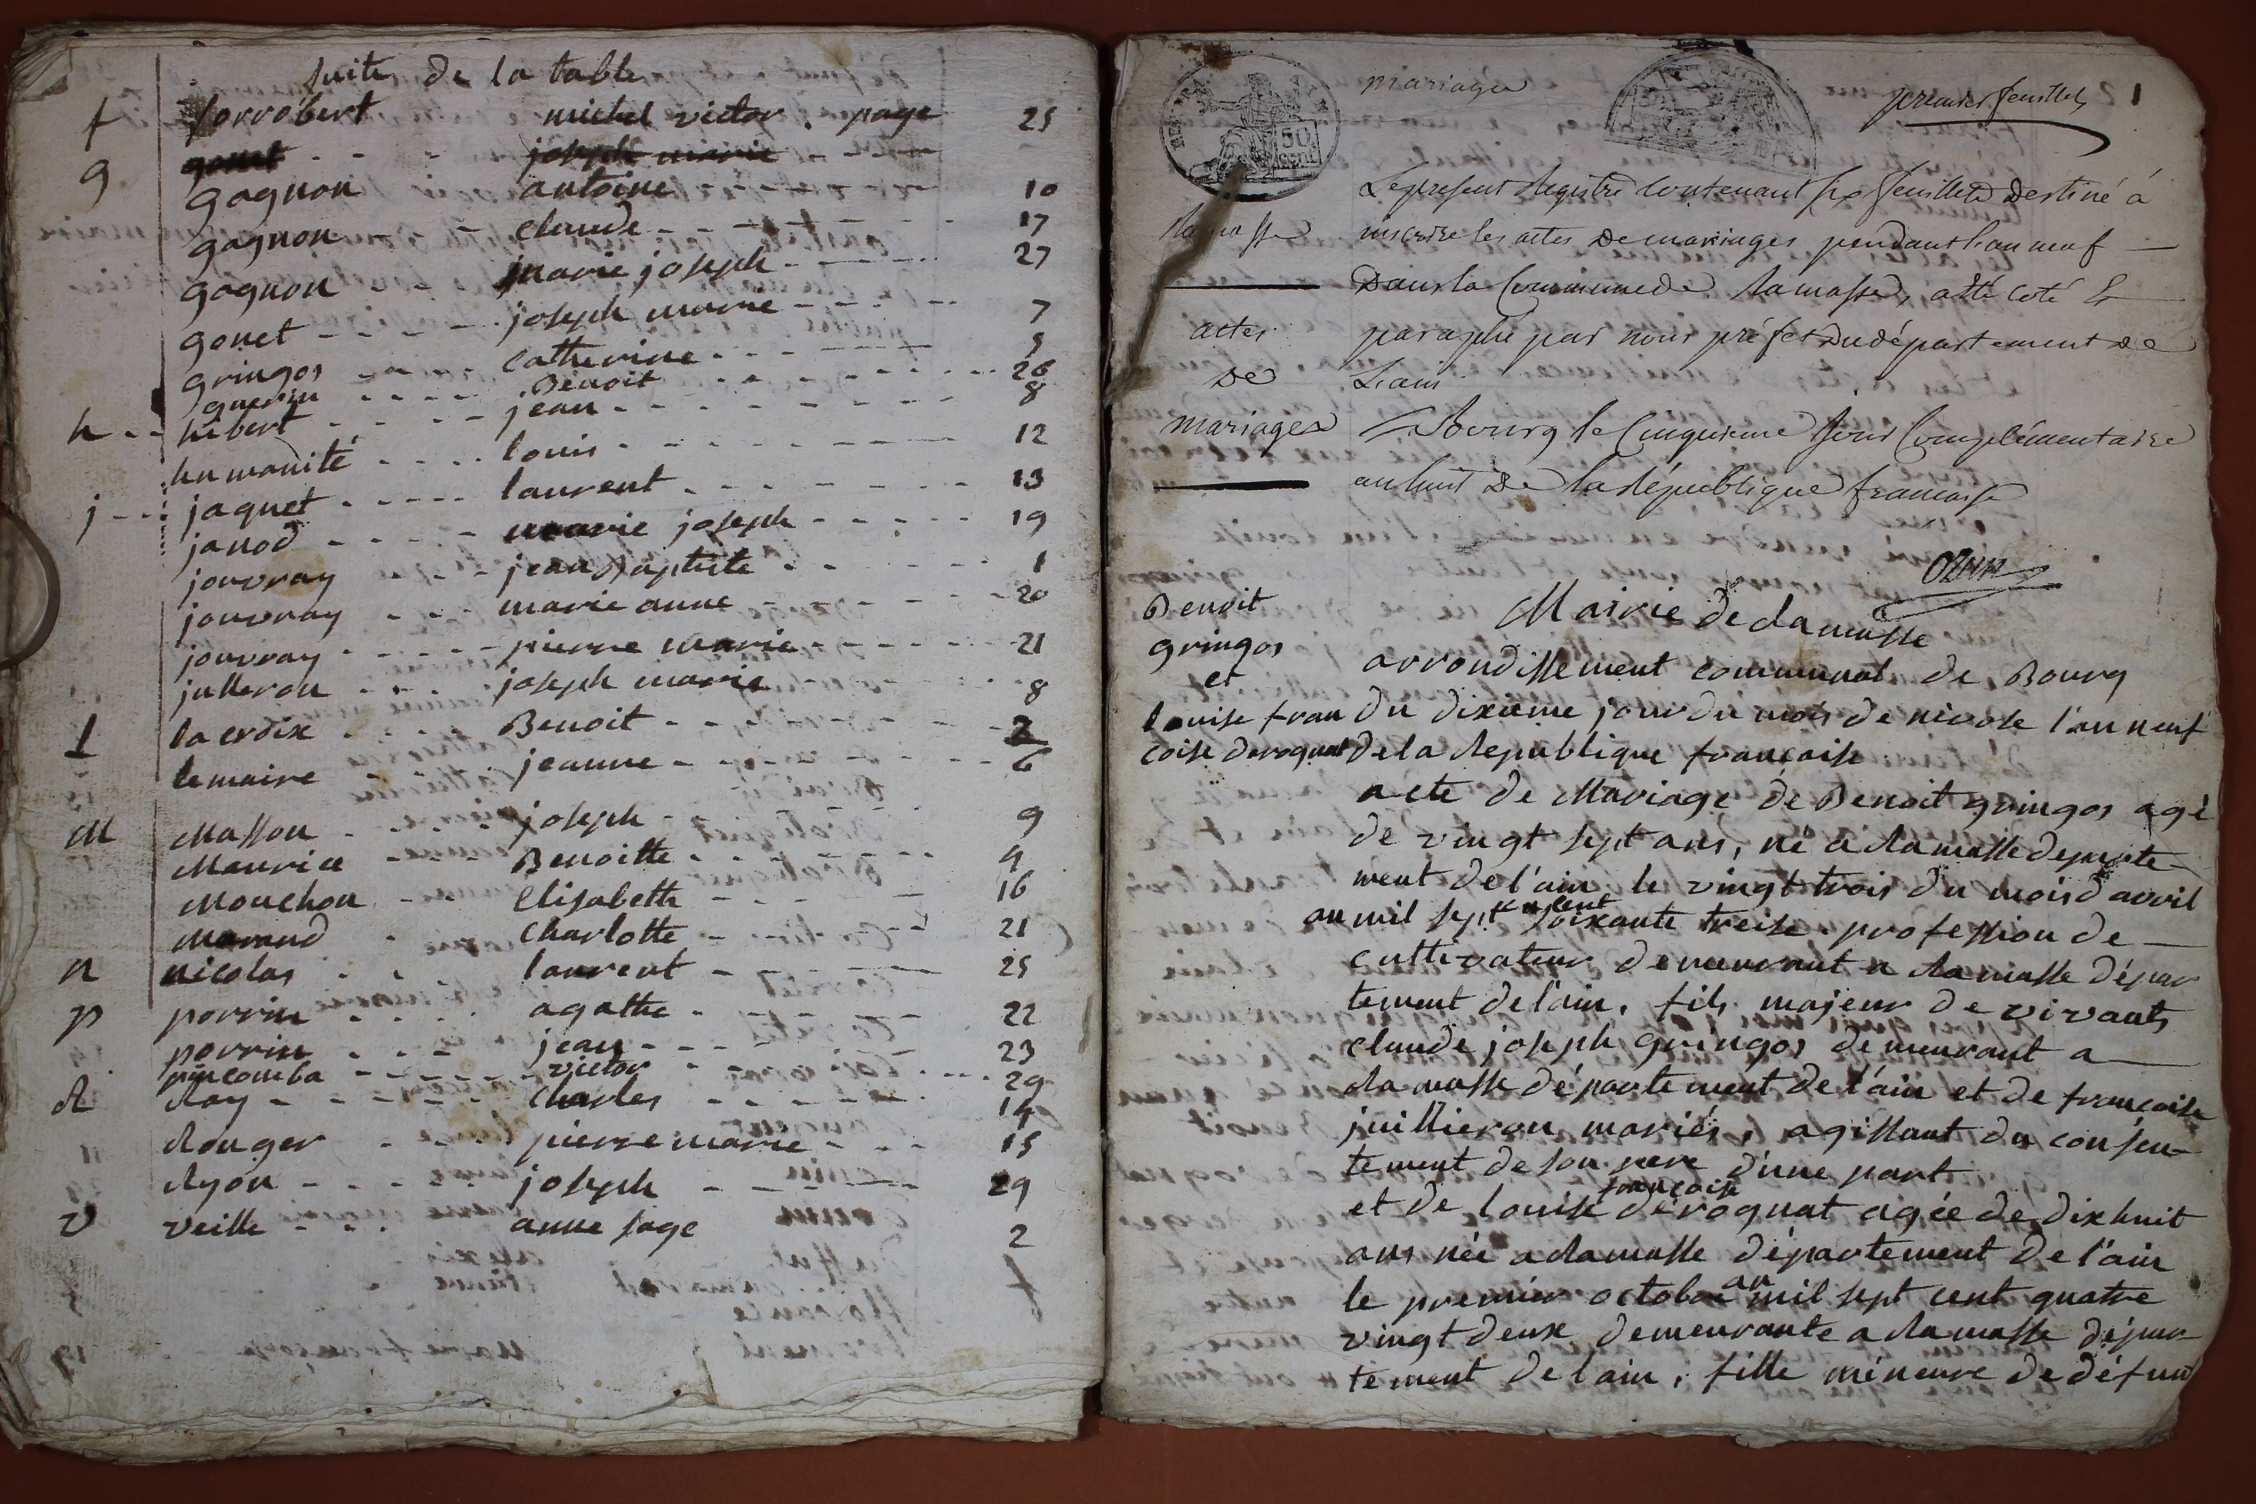 suite de la table
f forrobert michel victor . page 25
gonet joseph marie
g gagnon antoine 10
gagnon claude 17
gagnon marie joseph 27
gonet joseph marie 7
gringos catherine 9
guerin Benoit 26
h hibert jean 8
humanité louis 12
j jaquet laurent 13
janod marie joseph 19
jouvray jean baptiste 1
jouvray marie anne 20
jouvray pierre marie 21
julleron joseph marie 8
l la croix Benoit 2
lemaire jeanne 6
M Masson joseph 9
Maurice Benoitte 9
Mouchon Elisabeth 16
Morand Charlotte 21
n nicolas laurent 25
p perrin agathe 22
perrin jean 23
pincomba victor 29
R Ray Charles 14
Rouger pierre marie 15
Ryon joseph 29
v veille anne sage 2
mariage
premier feuillet 1
50 cent
Ramasse
actes
de
mariages
Le present Registre Contenant six feuillets Destiné à
inscrire les actes de mariages pendant l'an neuf
dans la Commune de Ramasse, a été coté Et
paraphé par nous préfet du département de
L'ain
A Bourg le Cinquieme jour Complémentaire
an huit de la République française
Ozun
Benoit
gringos
et
louise fran
coise deroquat
Mairie de Ramasse
arrondissement communal de Bourg
du dixieme jour du mois de nivose l'an neuf
de la Republique française
acte de Mariage de Benoit gringos agé
de vingt sept ans, né a Ramasse departe
ment de l'ain, le vingt trois du mois d avril
an mil sept cent soixante treise profession de
cultivateur demeurant a Ramasse dépar
tement de l'ain, fils majeur de vivants
claude joseph gringos demeurant a
Ramasse département de l'ain et de françoise
juillieron mariés, agissant du consen
tement de son pere d'une part
et de louise françoise deroquat agée de dix huit
ans née a Ramasse département de l'ain
le premier octobre an mil sept cent quatre
vingt deux demeurante a Ramasse dépar
tement de l ain, fille mineure de défunt